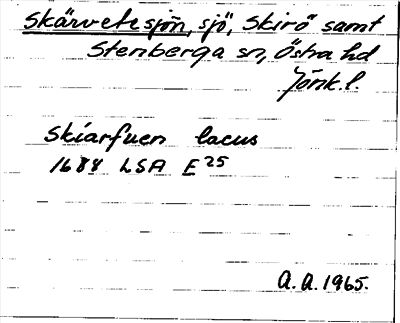 Skärvetesjön, sjö, Skirö samt
Stenberga sn, Östra hd
Jönk. l.
Skiarfuen lacus
1688 LSA E25
A. A. 1965.